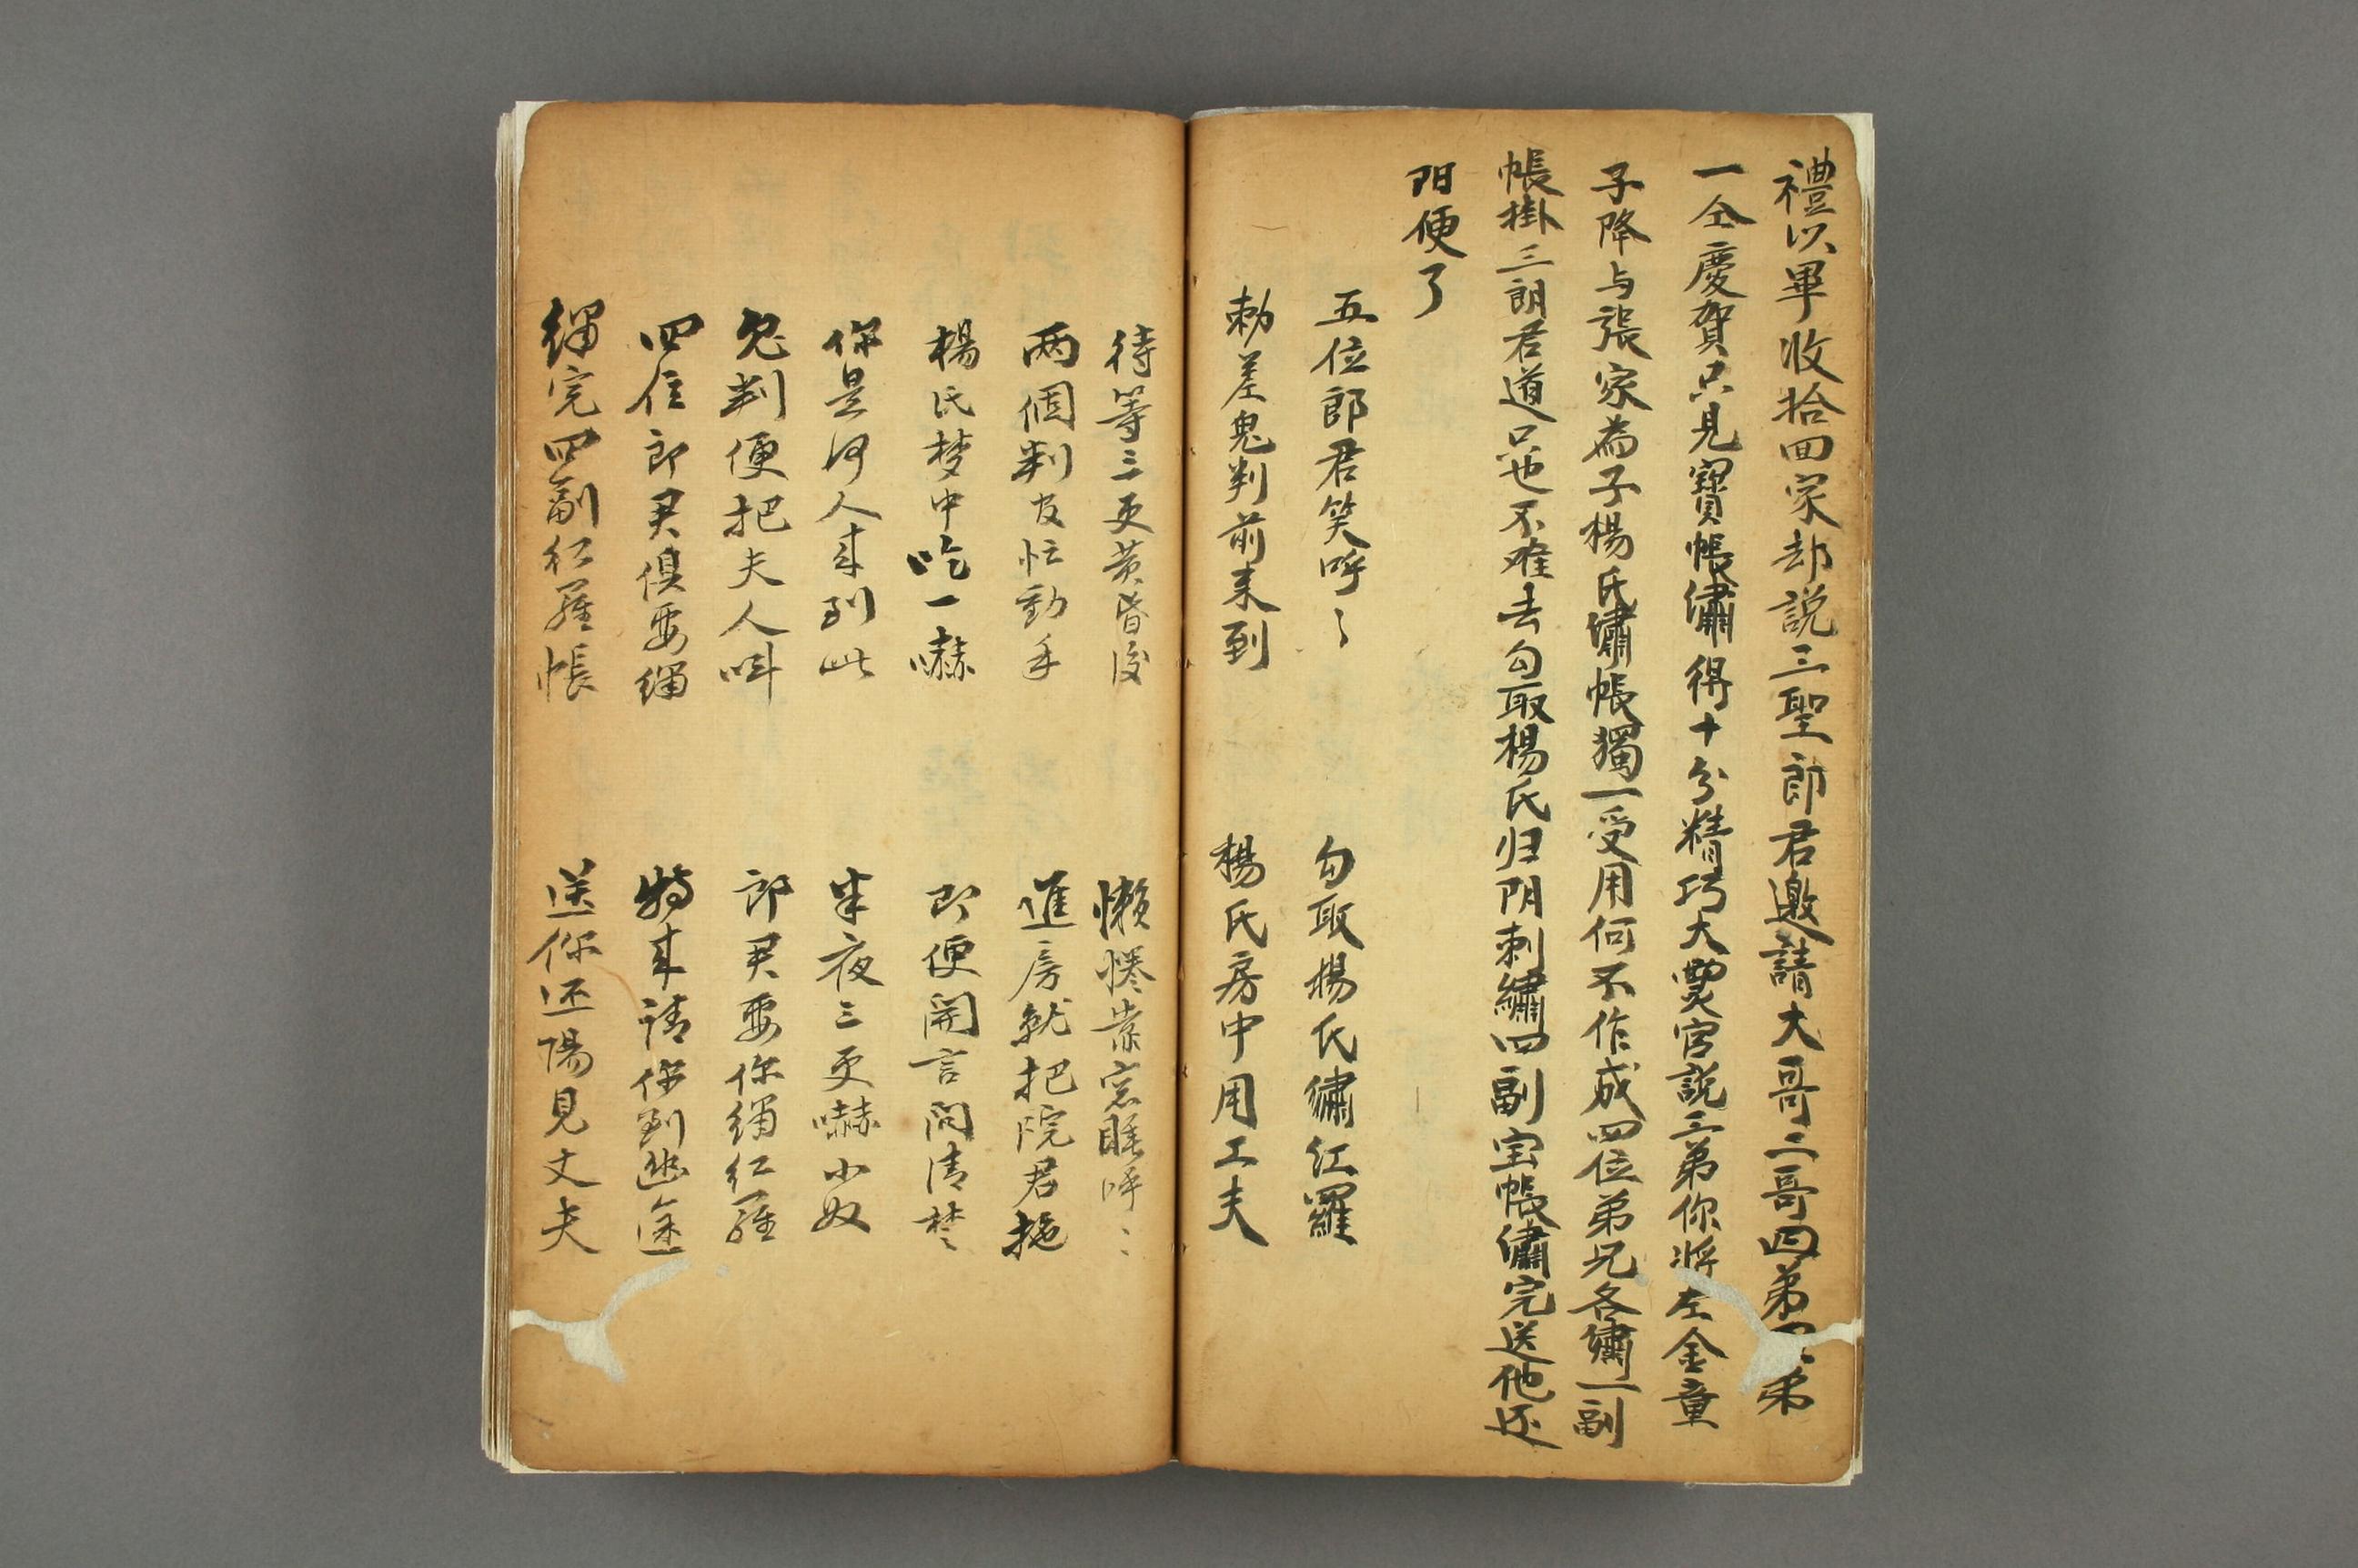 禮以畢收拾回家却説三聖郎君邀請大哥二哥四弟五弟
一仝慶賀只見寳帳繡得十分精巧大灵官説三弟你將左金童
子降与張家為子楊氏繡帳獨一受用何不作成四位弟兄各繡一副
帳掛三朗君道只也不难去勾取楊氏归阴刺繡四副宝帳繡完送他还
阳便了
五位郎君笑呼〻　勾取楊氏繡红羅
勅差鬼判前来到　楊氏房中用工夫
待等三更黄昏後　懒惓紫窓睡呼〻
两個判官忙動手　進房就把院君拖
楊氏梦中吃一嚇　即便開言问清楚
你是何人来到此　半夜三更嚇小奴
鬼判便把夫人叫　郎君要你綉红羅
四位郎君俱要綉　特来请你到幽途
綉完四副红羅帳　送你还陽見丈夫